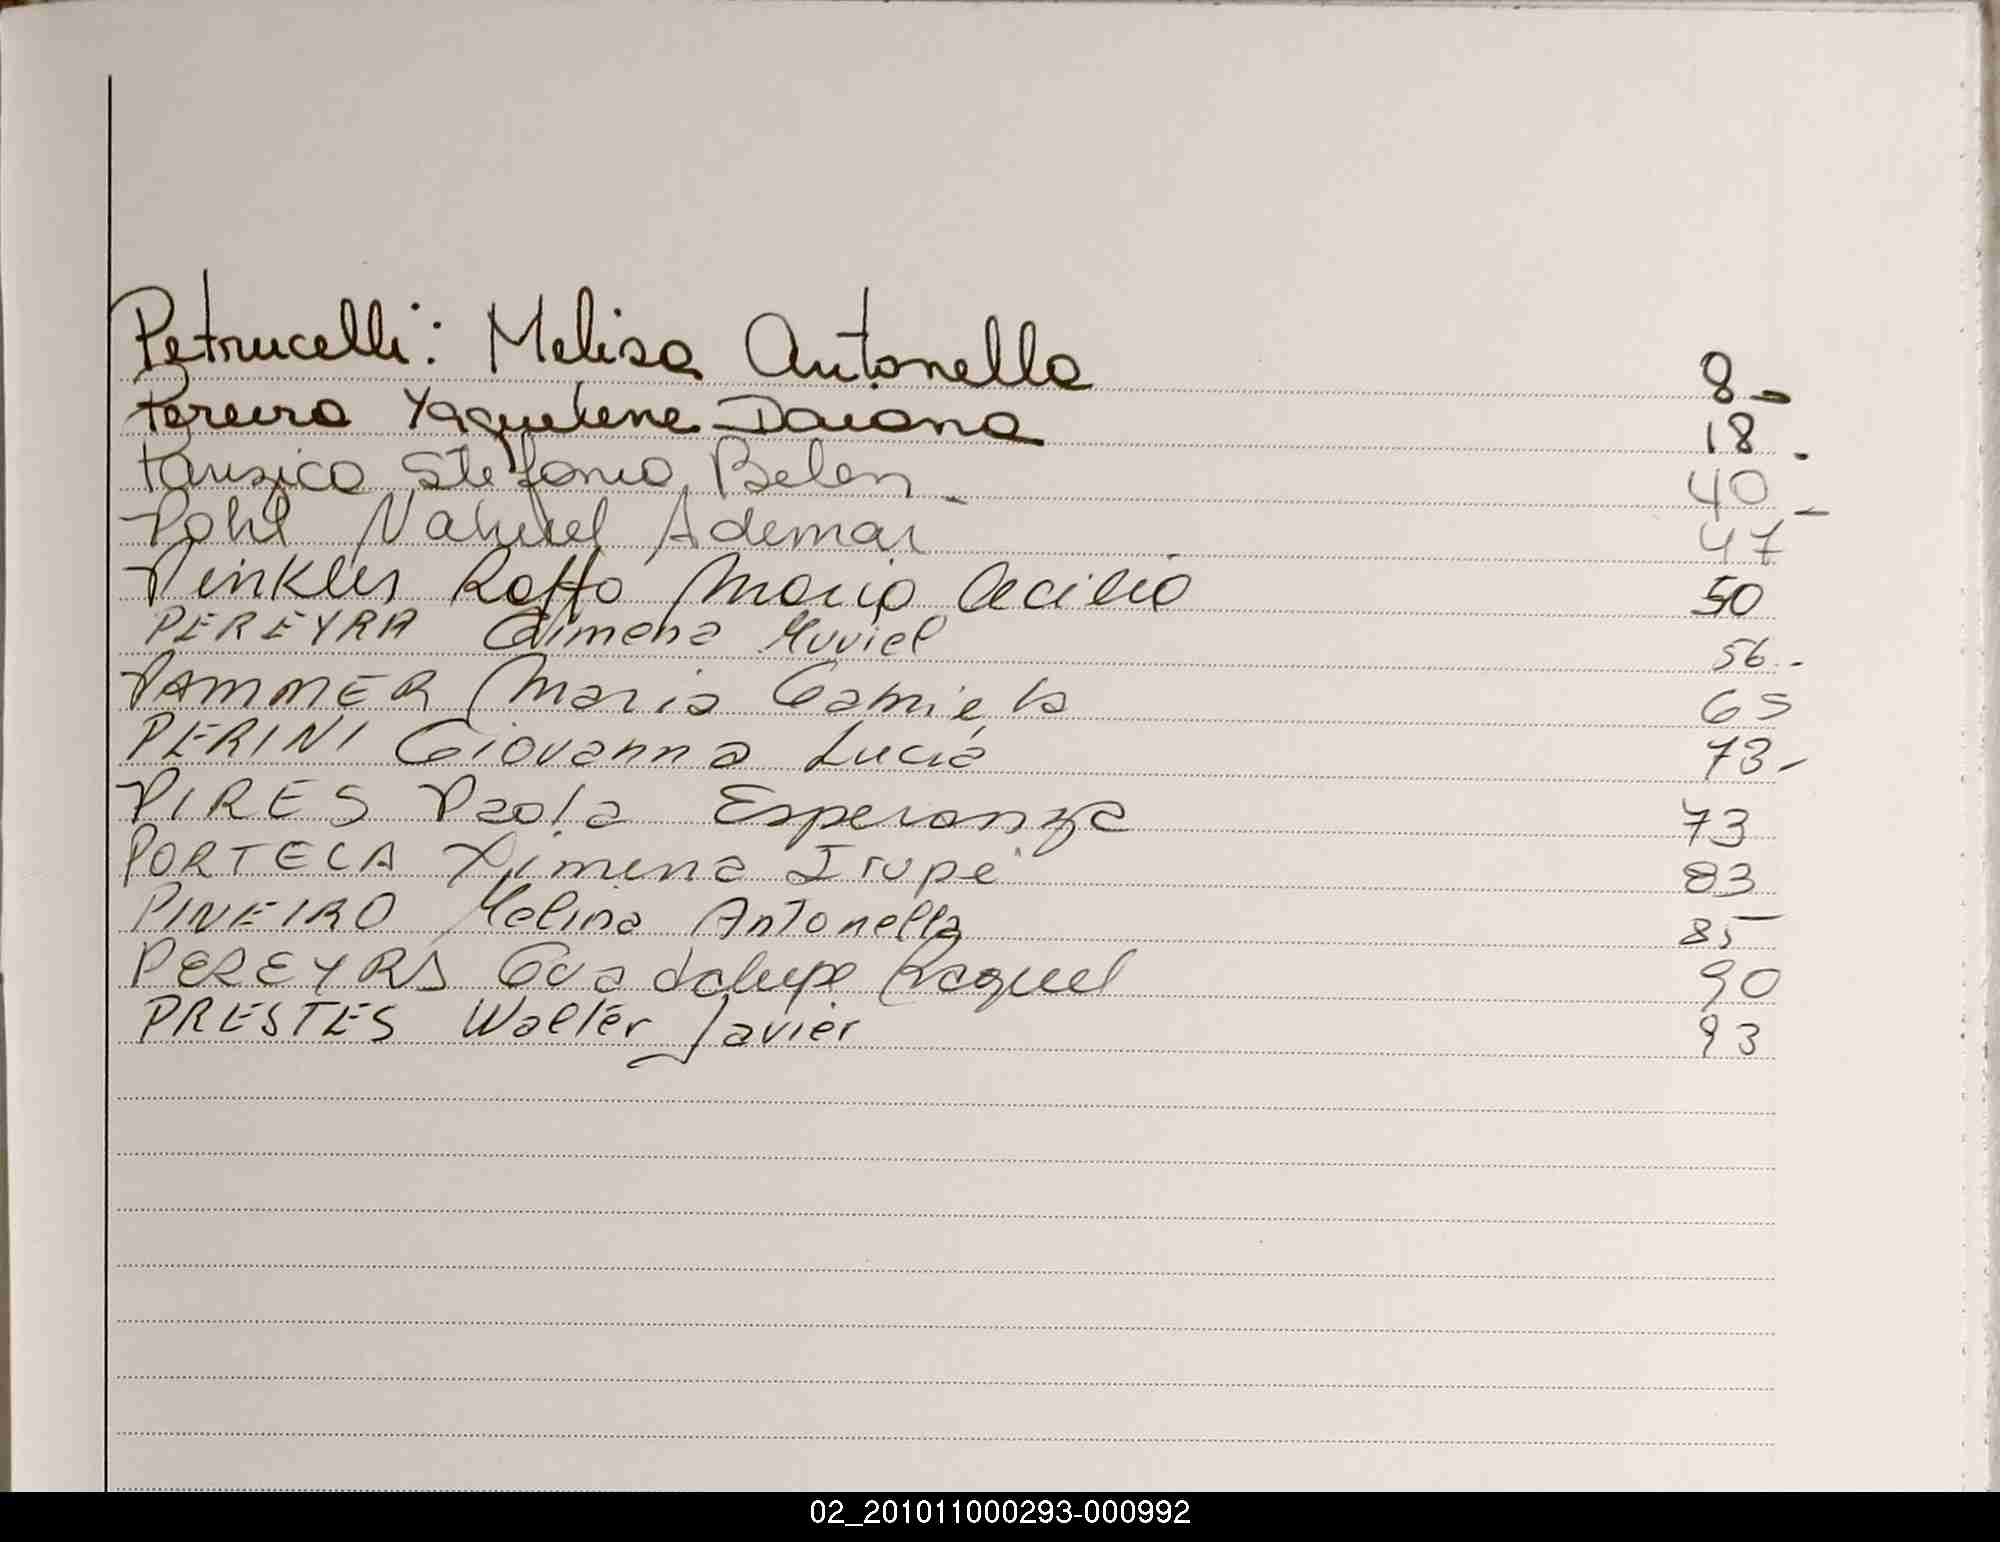 Petrucelli: Melisa Antonella 8-
Pereira Yaquelene Daiana 18.
Stefania Belen - 40-
Pohl Nahuel Ademar 47
Roffo Maria Cecilia 50
PEREYRA Gimena Muriel 56-
PAMMER Maria Gabriela 65
PERINI Giovanna Lucia 73-
PIRES Paola Esperanza 73
PORTECA Ximena Irupé 83
PINEIRO Melina Antonella 85-
PEREYRA Guadalupe Raquel 90
PRESTES Walter Javier 93
02_201011000293-000992